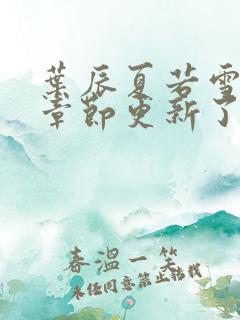 葉辰夏若雪
章節更新了
春溫一笑
未经同意禁止转载